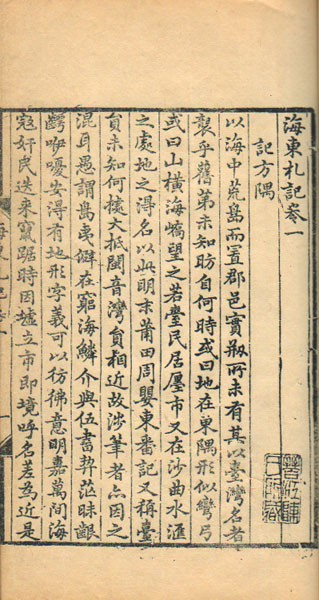 海東札記卷一
記方隅
以海中荒島而置郡邑實刱所未有其以臺灣名者
襲乎舊第未知昉自何時或曰地在東隅形似彎弓
或曰山橫海嶠望之若臺民居廛市又在沙曲水滙
之處地之得名以此明末莆田周嬰東番記又稱臺
員未知何據大抵閩音灣員相近故涉筆者亦因之
混耳愚謂島夷僻在窮海鱗介與伍書契茫昧齦
齶咿嚘安得有地形字義可以彷彿意明嘉萬間海
寇奸民迭來竄踞時因墟立市即境呼名差為近是